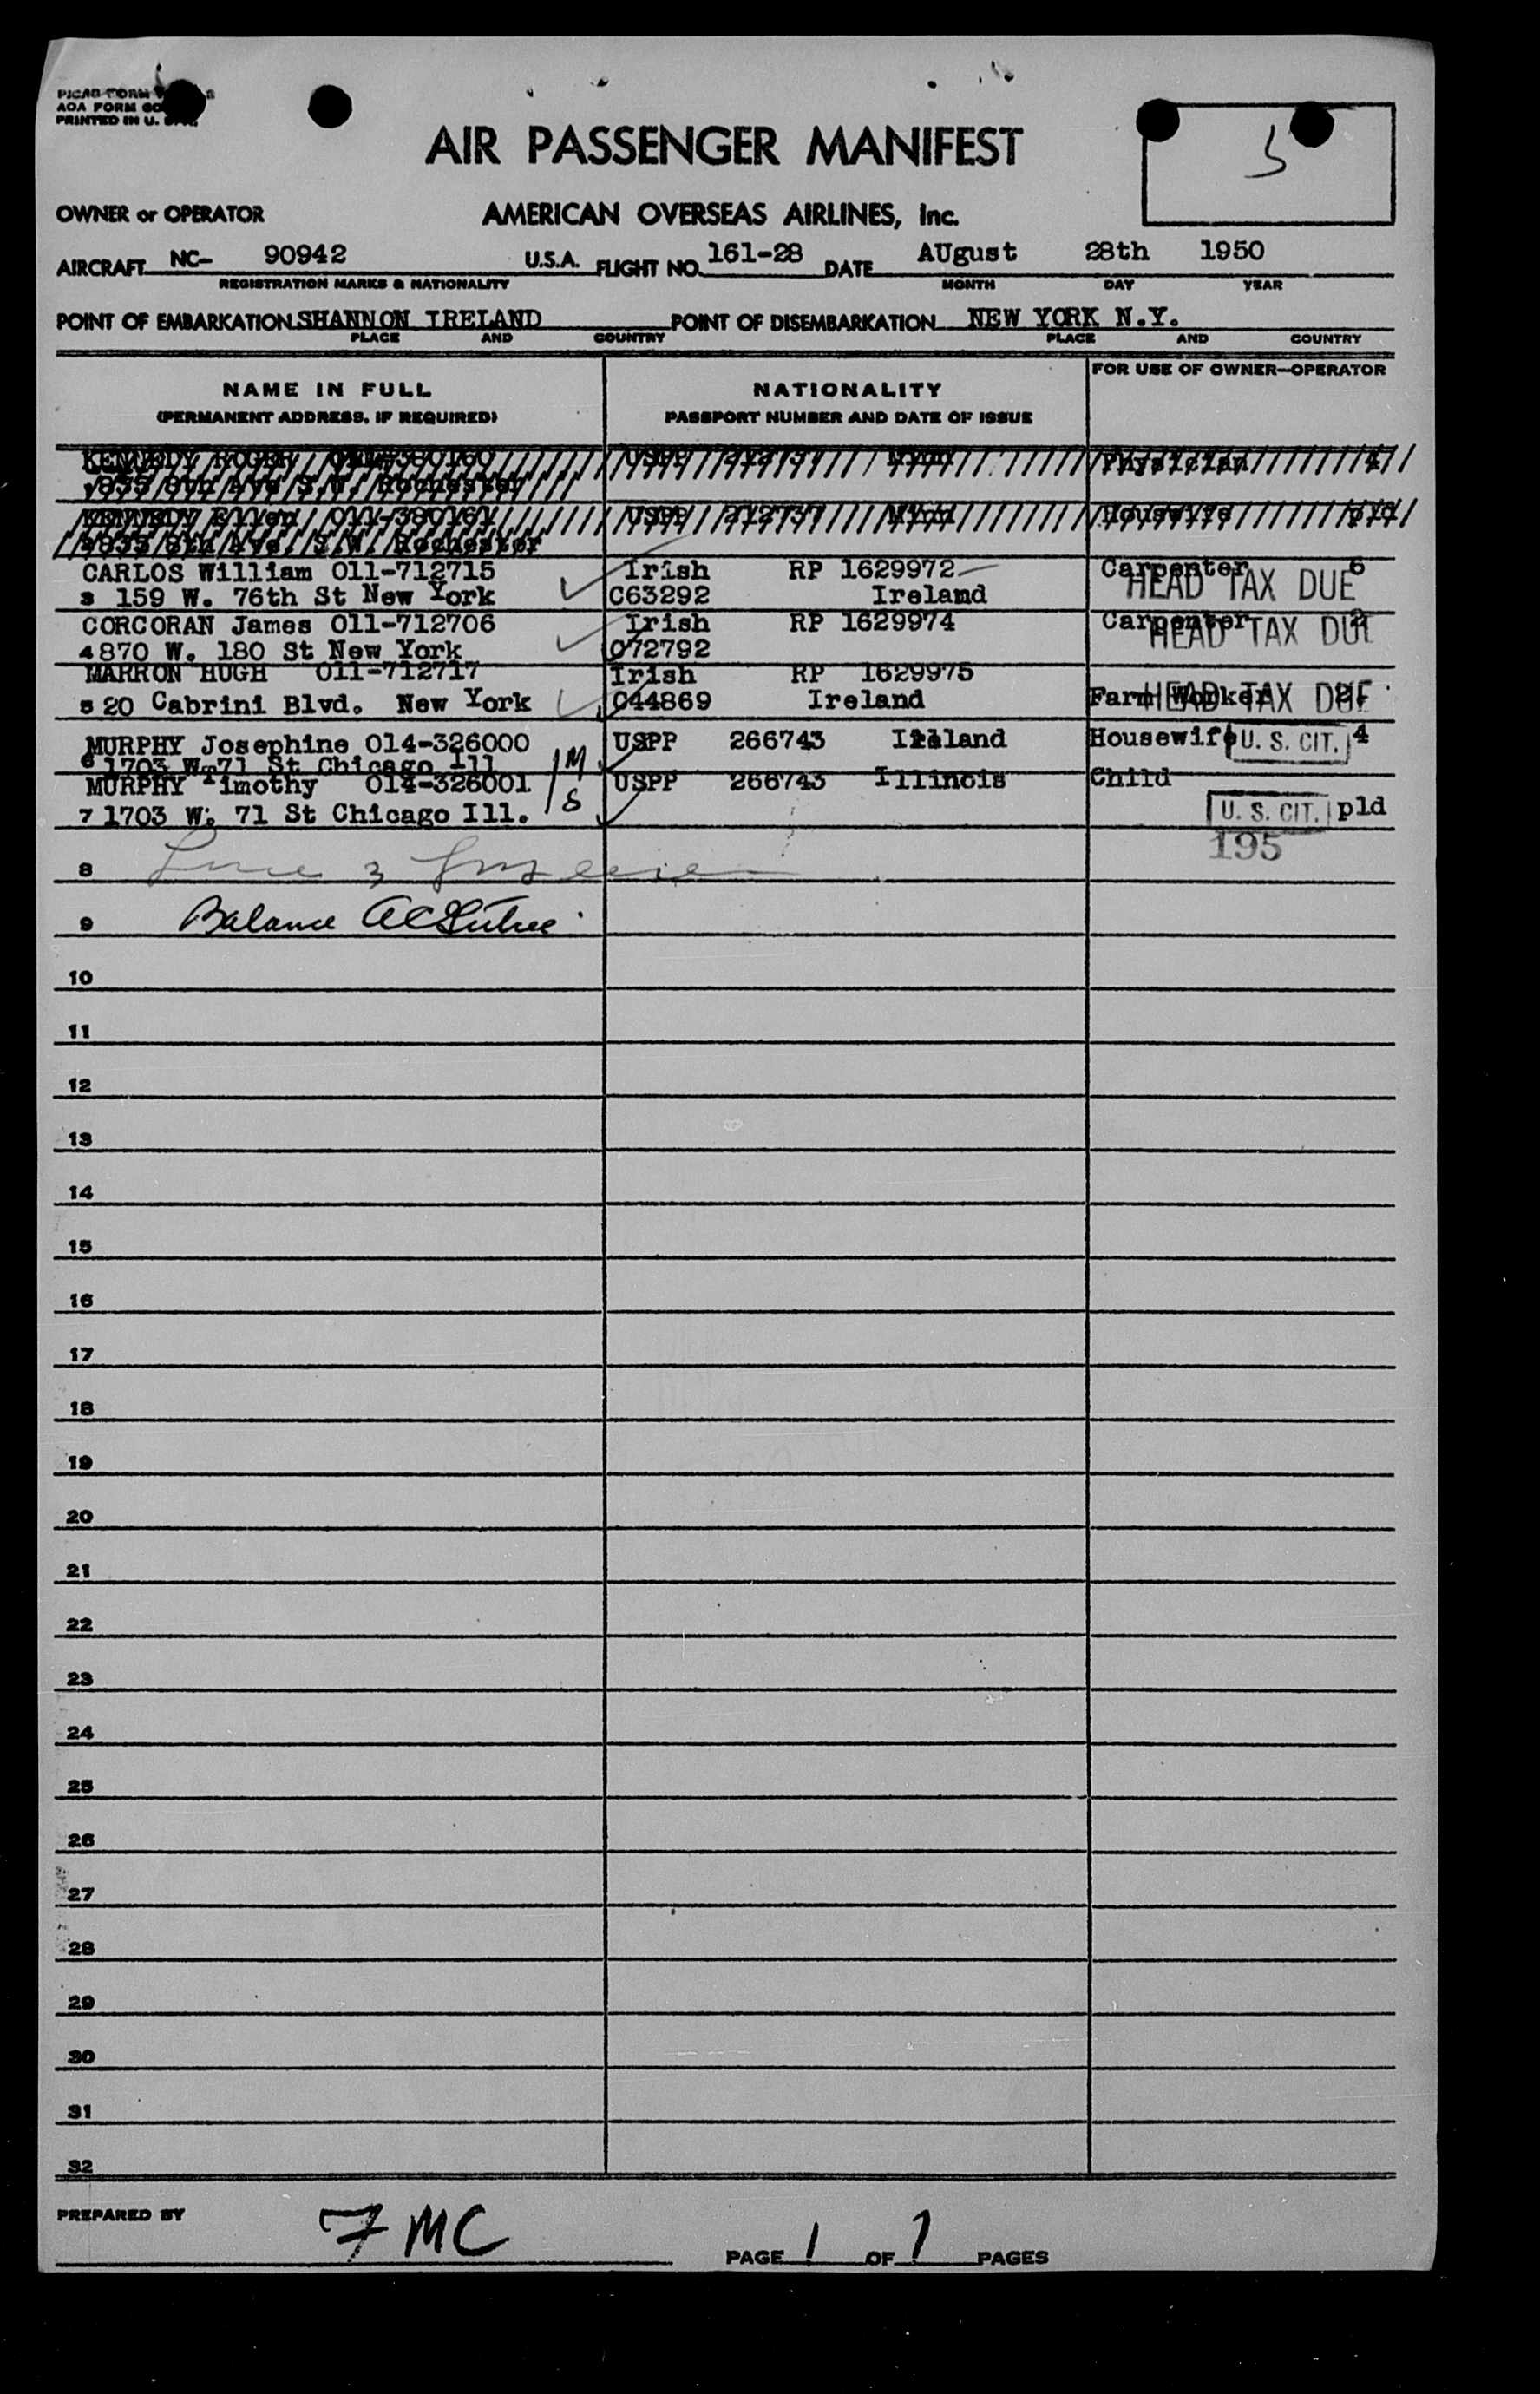 AIR PASSENGER MANIFEST
5
OWNER or OPERATOR AMERICAN OVERSEAS AIRLINES, Inc.
AIRCRAFT NC- 90942 U.S.A. FLIGHT NO. 161-28 DATE AUgust 28th 1950
REGISTRATION MARKS & NATIONALITY MONTH DAY YEAR
POINT OF EMBARKATION SHANNON IRELAND POINT OF DISEMBARKATION NEW YORK N.Y.
PLACE AND COUNTRY PLACE AND COUNTRY
NAME IN FULL NATIONALITY FOR USE OF OWNER—OPERATOR
(PERMANENT ADDRESS, IF REQUIRED) PASSPORT NUMBER AND DATE OF ISSUE
KENNEDY ROGER USPP 212737 Minn Physician
KENNEDY Ellen 011-380161 USPP 212737 Minn Housewife
CARLOS William 011-712715 Irish RP 1629972 Carpenter 6
3 159 W. 76th St New York C63292 Ireland HEAD TAX DUE
CORCORAN James 011-712706 Irish RP 1629974 Carpenter
4 870 W. 180 St New York C72792 HEAD TAX DUE
MARRON HUGH 011-712717 Irish RP 1629975
5 20 Cabrini Blvd. New York C44869 Ireland Farm Worker HEAD TAX DUE
MURPHY Josephine 014-326000 USPP 266743 Ireland Housewife U. S. CIT. 4
6 1703 W. 71 St Chicago Ill M
MURPHY Timothy 014-326001 USPP 266743 Illinois Child
7 1703 W. 71 St Chicago Ill. S U. S. CIT. pld
195
8
9 Balance
10
11
12
13
14
15
16
17
18
19
20
21
22
23
24
25
26
27
28
29
30
31
32
PREPARED BY 7 MC
PAGE 1 OF 1 PAGES